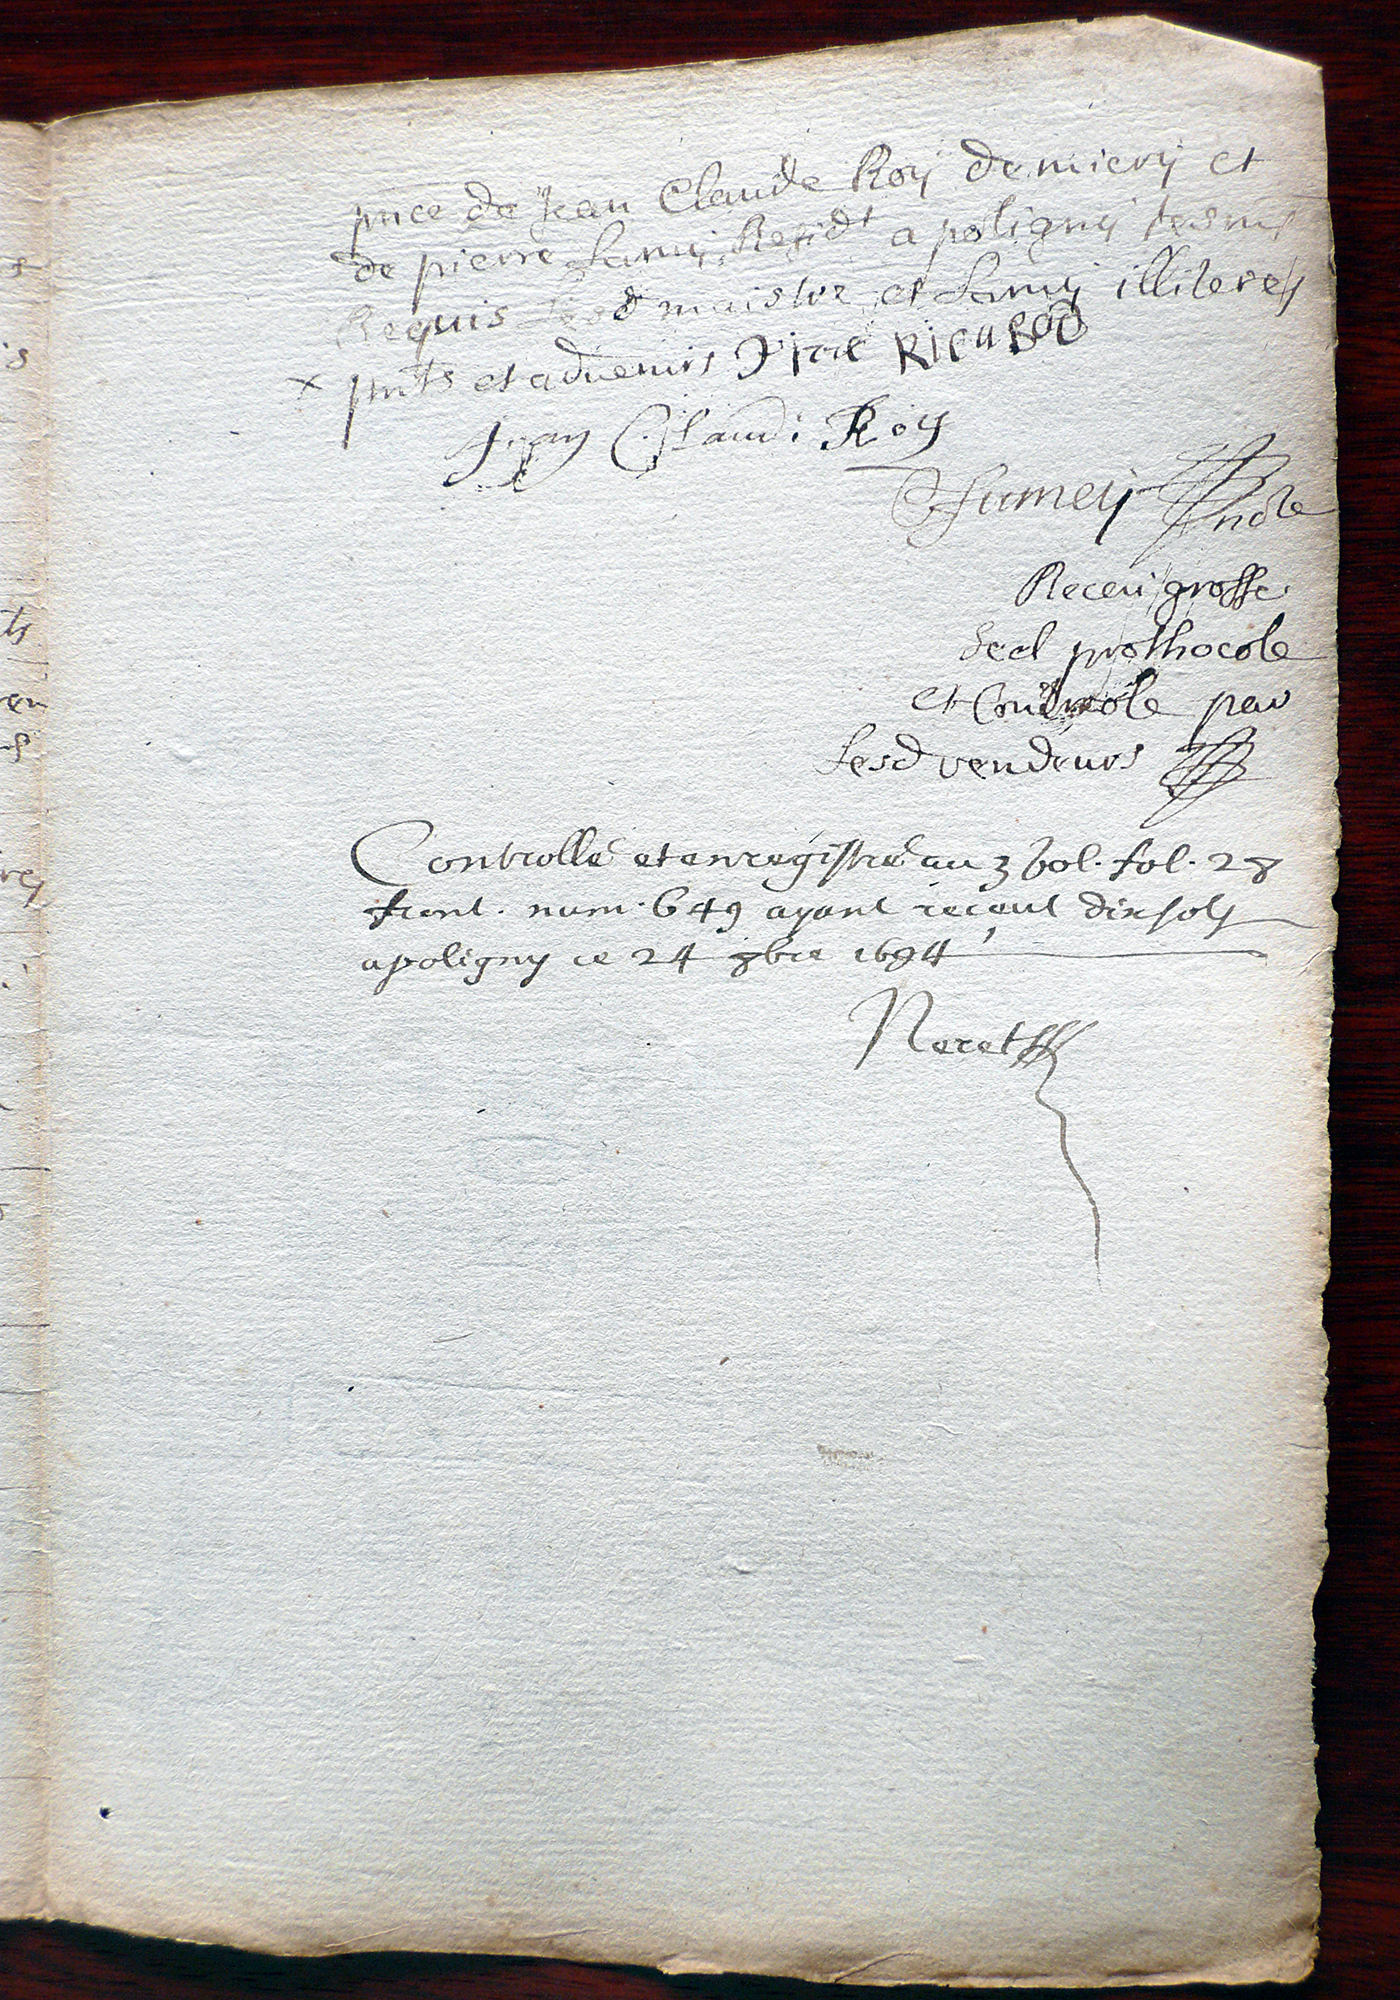 pnce de Jean Claude Roy de miery et
de pierre Lamy Residt a poligny tesms
Requis Lesd maistre et Lamy illiterey
x pnts et advenirs Pirre RICABOD
Jean Claudi Roy
Fumey nore
Receu grosse
seel prothocole
et Controle par
Lesd vendeurs
Controllé et enregistré au 3 vol. fol. 28
front. num. 649 ayant receut dix sols
a poligny ce 24 9bre 1694
Neret